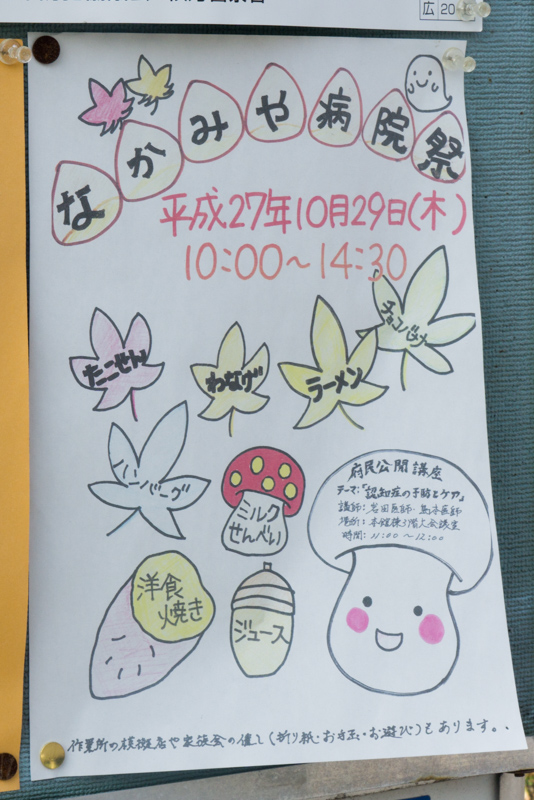 広 20
なかみや病院祭
平成27年10月29日(木)
10:00～14:30
チョコバナナ
たこせん
わなげ
ラーメン
ハンバーグ
ミルク
せんべい
府民公開講座
テーマ:「認知症の予防とケア」
講師:岩田医師・馬本医師
場所:本館棟3階大会議室
時間:11:00～12:00
洋食
焼き
ジュース
作業所の模擬店や家族会の催し(折り紙・お手玉・お遊び)もあります。